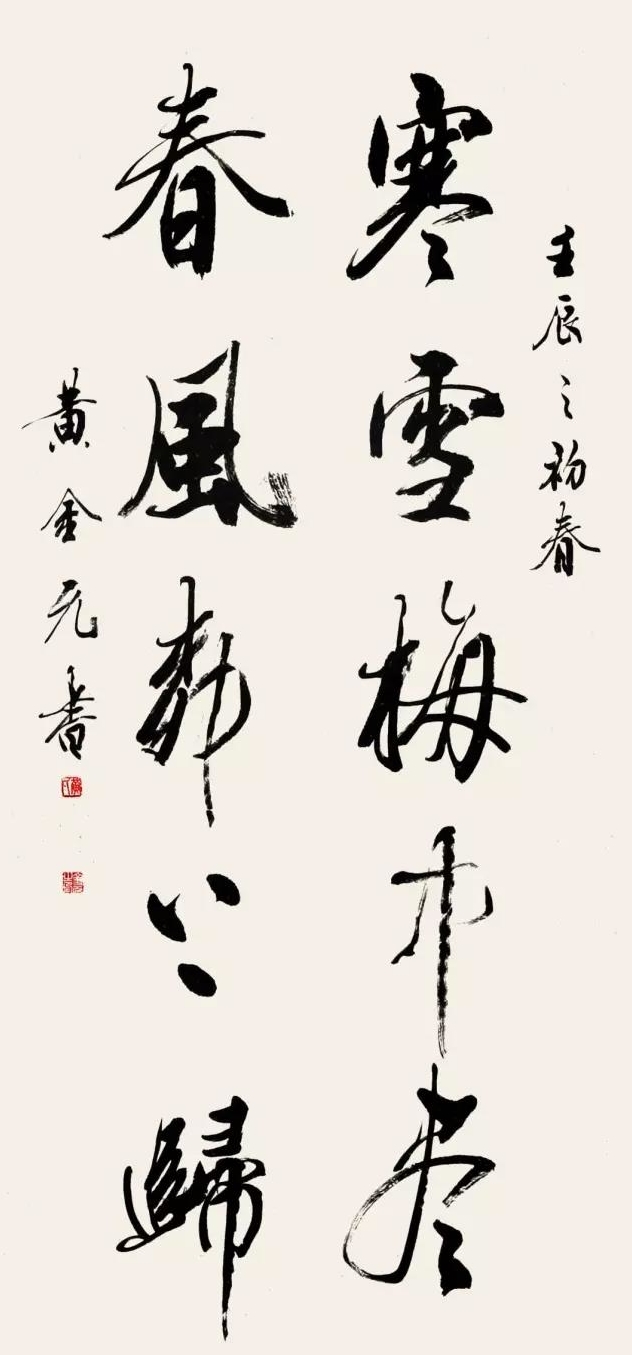 壬辰之初春
寒雪梅中尽
春風柳上歸
黄金元書